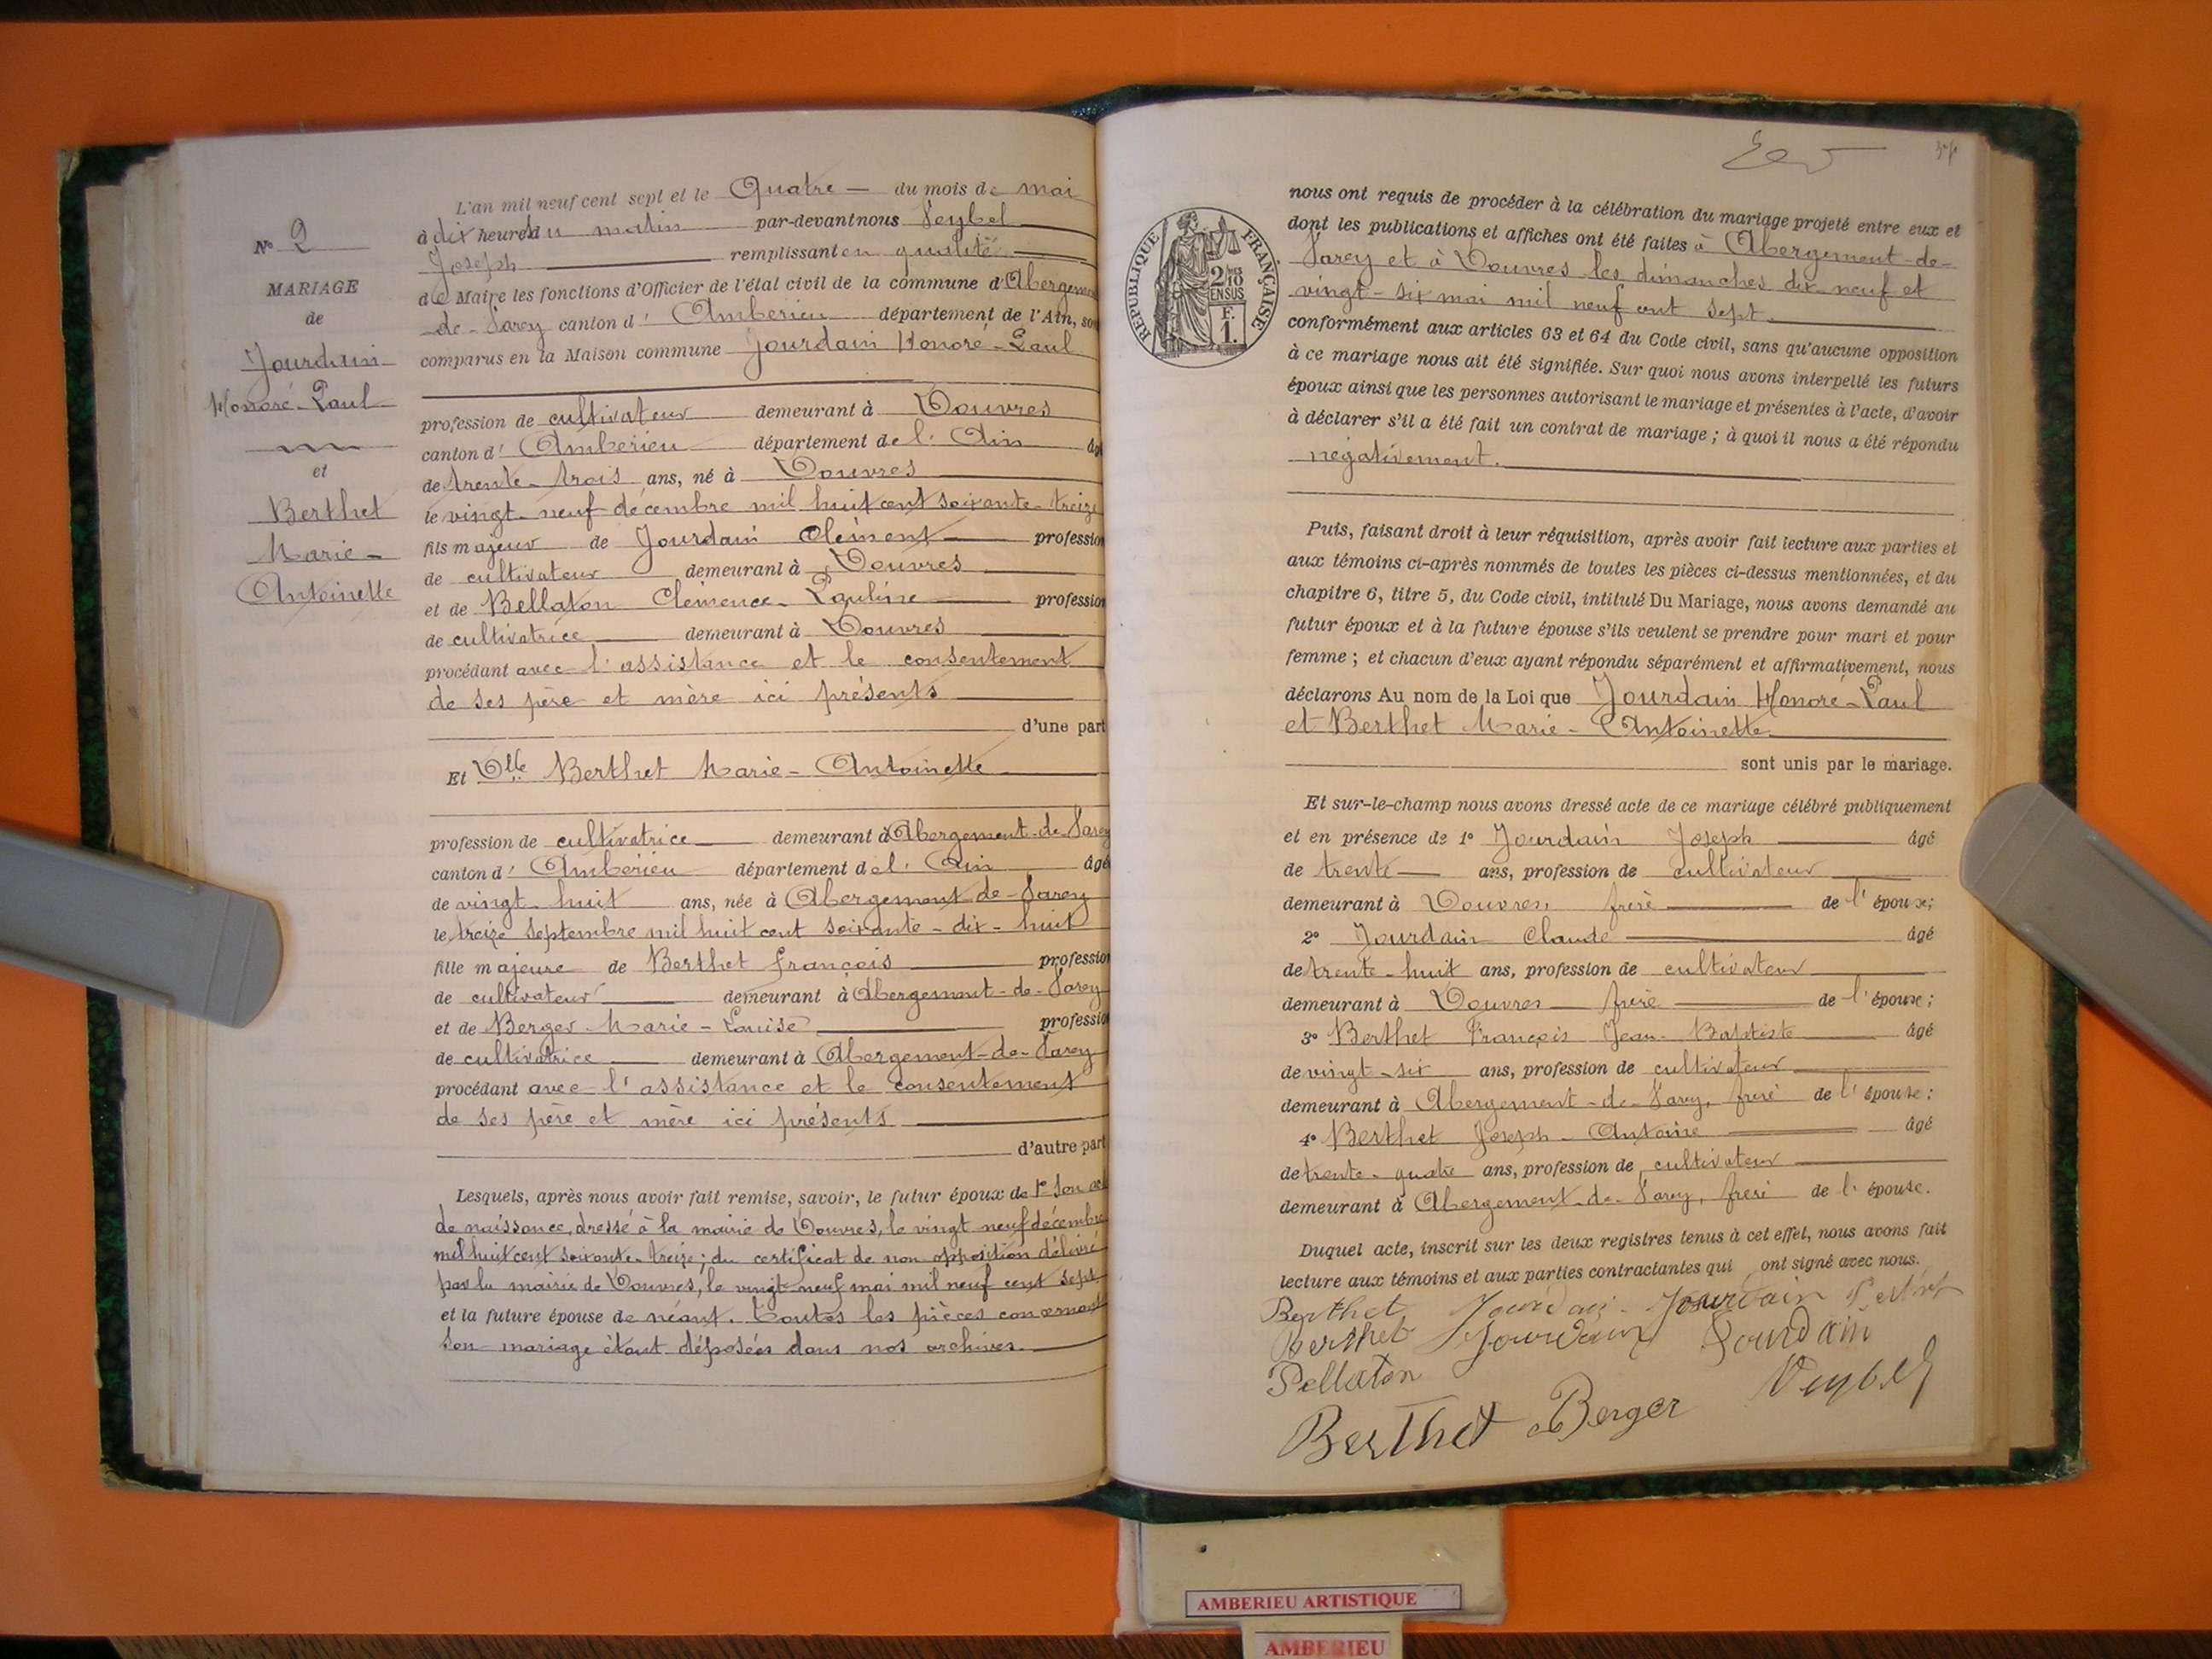 N° 2
MARIAGE
de
Jourdain
Honoré-Paul
et
Berthet
Marie-
Antoinette
L'an mil neuf cent sept et le Quatre du mois de mai
à dix heures du matin par-devant nous Peybel
Joseph remplissant en qualité
de Maire les fonctions d'Officier de l'état civil de la commune d'Abergement
de-Varey canton d' Ambérieu département de l'Ain, sont
comparus en la Maison commune Jourdain Honoré-Paul
profession de cultivateur demeurant à Douvres
canton d' Ambérieu département de l' Ain âgé
de trente-trois ans, né à Douvres
le vingt-neuf décembre mil huit cent soixante-treize
fils majeur de Jourdain Clément profession
de cultivateur demeurant à Douvres
et de Bellaton Clémence-Pauline profession
de cultivatrice demeurant à Douvres
procédant avec l'assistance et le consentement
de ses père et mère ici présents
d'une part
Et Dlle Berthet Marie-Antoinette
profession de cultivatrice demeurant à Abergement-de-Varey
canton d' Ambérieu département de l' Ain âgé
de vingt-huit ans, née à Abergement-de-Varey
le treize septembre mil huit cent soixante-dix-huit
fille majeure de Berthet François profession
de cultivateur demeurant à Abergement-de-Varey
et de Berger Marie-Louise profession
de cultivatrice demeurant à Abergement-de-Varey
procédant avec l'assistance et le consentement
de ses père et mère ici présents
d'autre part
Lesquels, après nous avoir fait remise, savoir, le futur époux de 1° son acte
de naissance, dressé à la mairie de Douvres, le vingt neuf décembre
mil huit cent soixante-treize; du certificat de non opposition délivré
par la mairie de Douvres, le vingt-neuf mai mil neuf cent sept
et la future épouse de néant. Toutes les pièces concernant
son mariage étant déposées dans nos archives.
RÉPUBLIQUE FRANÇAISE
2/10 EN SUS
F.
1.
nous ont requis de procéder à la célébration du mariage projeté entre eux et
dont les publications et affiches ont été faites à Abergement-de-
Varey et à Douvres les dimanches dix-neuf et
vingt-six mai mil neuf cent sept.
conformément aux articles 63 et 64 du Code civil, sans qu'aucune opposition
à ce mariage nous ait été signifiée. Sur quoi nous avons interpellé les futurs
époux ainsi que les personnes autorisant le mariage et présentes à l'acte, d'avoir
à déclarer s'il a été fait un contrat de mariage ; à quoi il nous a été répondu
négativement.
Puis, faisant droit à leur réquisition, après avoir fait lecture aux parties et
aux témoins ci-après nommés de toutes les pièces ci-dessus mentionnées, et du
chapitre 6, titre 5, du Code civil, intitulé Du Mariage, nous avons demandé au
futur époux et à la future épouse s'ils veulent se prendre pour mari et pour
femme ; et chacun d'eux ayant répondu séparément et affirmativement, nous
déclarons Au nom de la Loi que Jourdain Honoré-Paul
et Berthet Marie-Antoinette
sont unis par le mariage.
Et sur-le-champ nous avons dressé acte de ce mariage célébré publiquement
et en présence de 1° Jourdain Joseph âgé
de trente ans, profession de cultivateur
demeurant à Douvres, frère de l'époux;
2° Jourdain Claude âgé
de trente-huit ans, profession de cultivateur
demeurant à Douvres frère de l'époux ;
3° Berthet François Jean-Baptiste âgé
de vingt-six ans, profession de cultivateur
demeurant à Abergement-de-Varey, frère de l'épouse ;
4° Berthet Joseph-Antoine âgé
de trente-quatre ans, profession de cultivateur
demeurant à Abergement-de-Varey, frère de l'épouse.
Duquel acte, inscrit sur les deux registres tenus à cet effet, nous avons fait
lecture aux témoins et aux parties contractantes qui ont signé avec nous.
Berthet Jourdain Jourdain
Berthet Jourdain Jourdain
Pellaton
Berthet Berger
AMBERIEU ARTISTIQUE
AMBERIEU